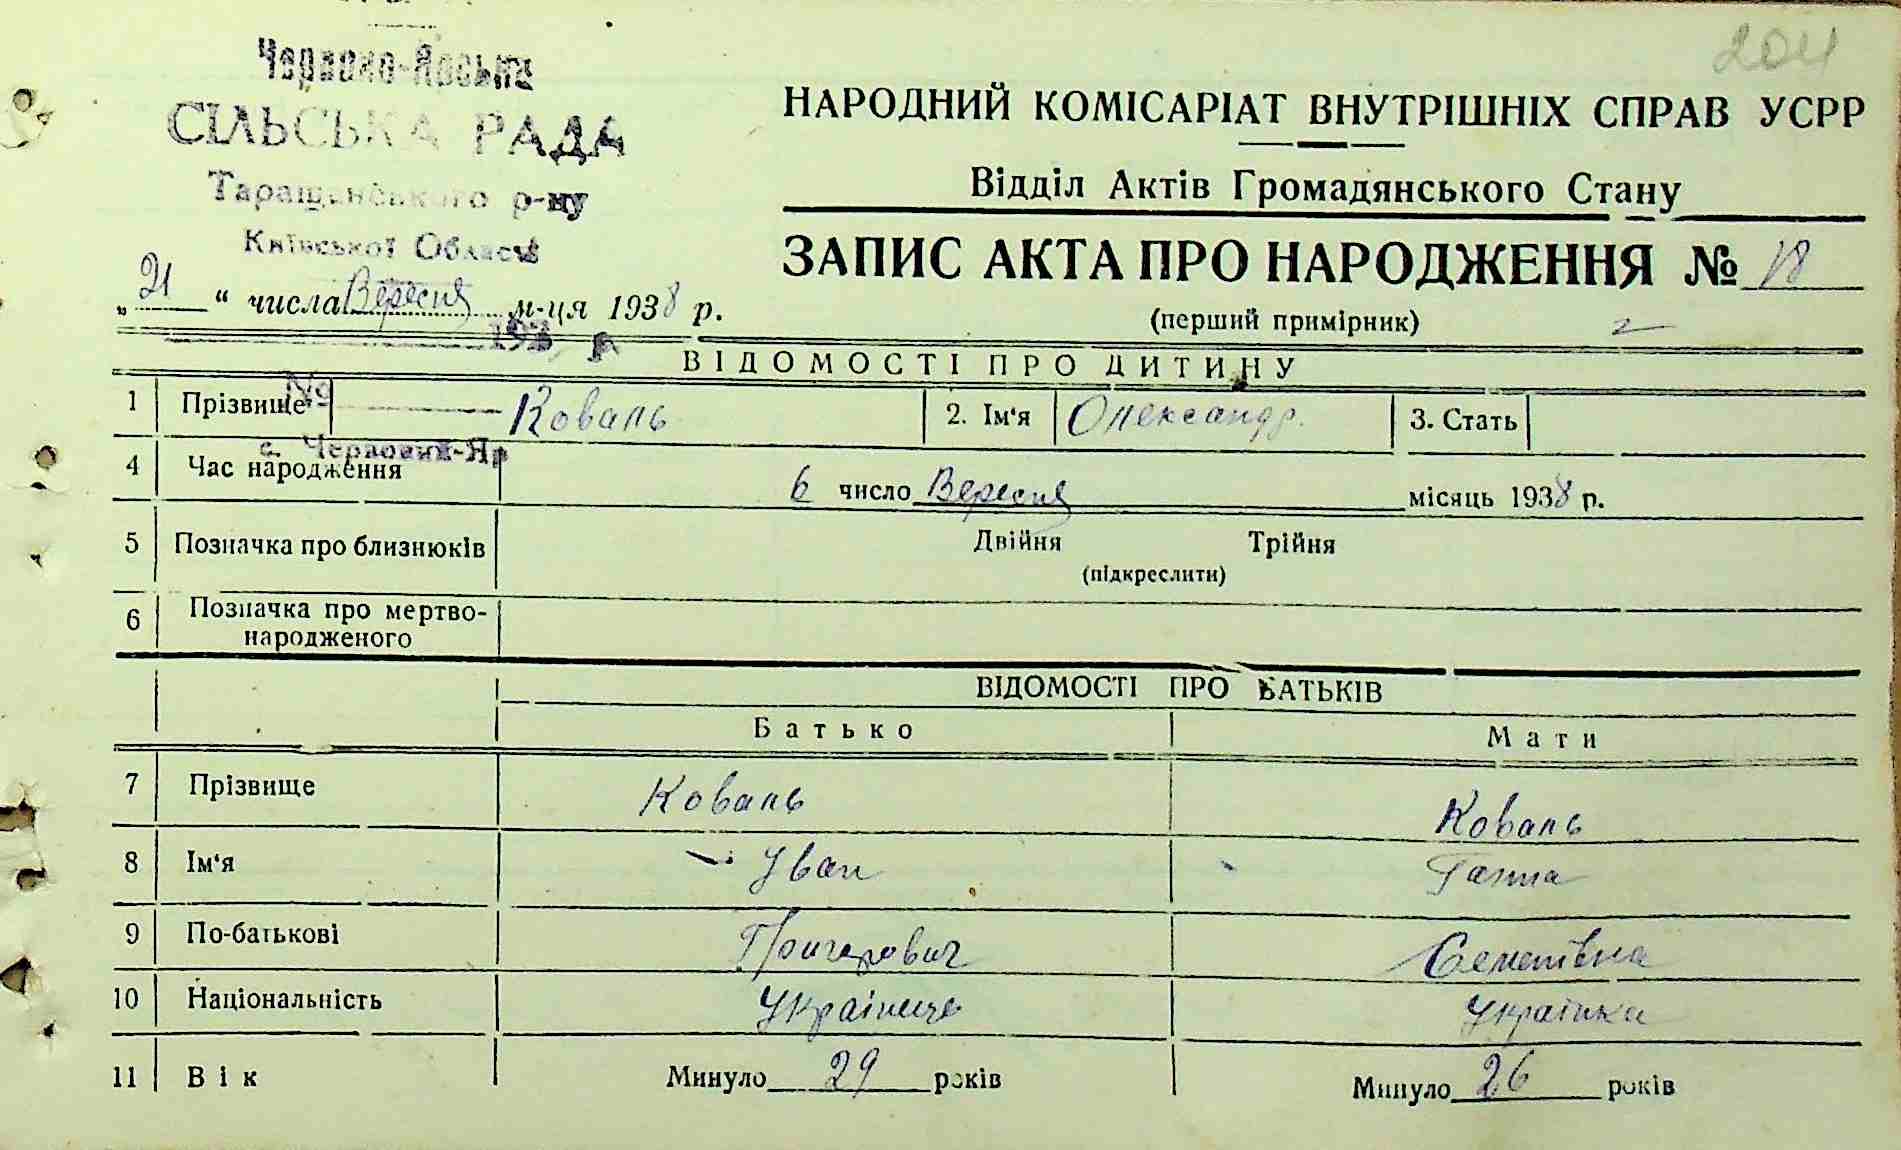 204
Червоно-Ярська
СІЛЬСЬКА РАДА
Таращанського р-ну
Київської Області
НАРОДНИЙ КОМІСАРІАТ ВНУТРІШНІХ СПРАВ УСРР
Відділ Актів Громадянського Стану
ЗАПИС АКТА ПРО НАРОДЖЕННЯ № 18
(перший примірник)
„21“ числа Вересня м-ця 1938 р.
193 р
ВІДОМОСТІ ПРО ДИТИНУ
№
1 Прізвище Коваль 2. Ім'я Олександр. 3. Стать
с. Червоний-Яр
4 Час народження 6 число Вересня місяць 1938 р.
5 Позначка про близнюків Двійня Трійня
(підкреслити)
6 Позначка про мертво-
народженого
ВІДОМОСТІ ПРО БАТЬКІВ
Батько Мати
7 Прізвище Коваль Коваль
8 Ім'я Іван Ганна
9 По-батькові Григорович
10 Національність Українець Українка
11 Вік Минуло 29 років Минуло 26 років